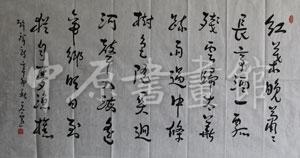 红叶晚萧萧
长亭酒一瓢
残云归太华
疏雨过中条
树色随关迥
河声入海遥
帝乡明日到
犹自梦渔樵
中原书画馆